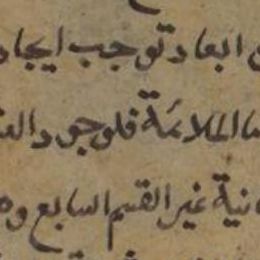 ابعاد توجب ايجاد
الملائمة فلوجود الع
نية غير القسم السابع و